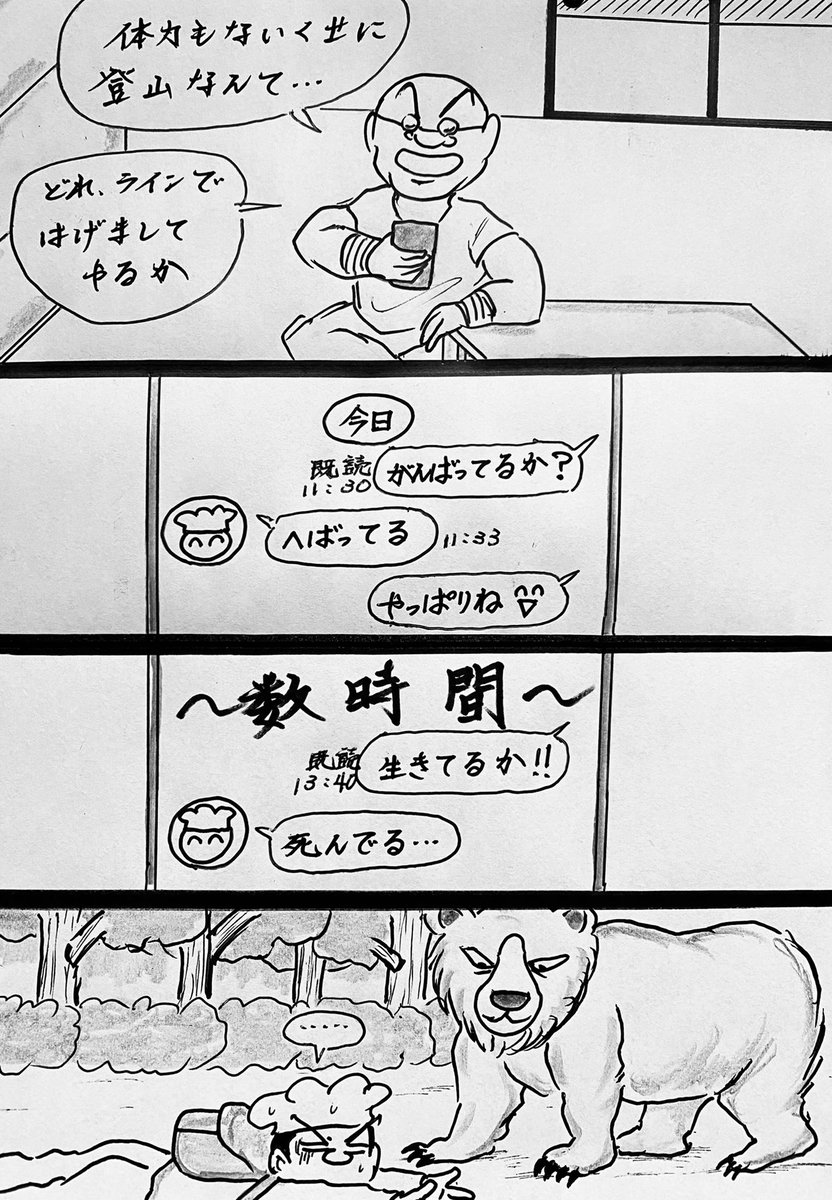 体力もないくせに
登山なんて…
どれ、ラインで
はげまして
やるか
今日
がんばってるか?
既読
11:30
へばってる
11:33
やっぱりね
〜数時間〜
生きてるか!!
既読
13:40
死んでる…
……